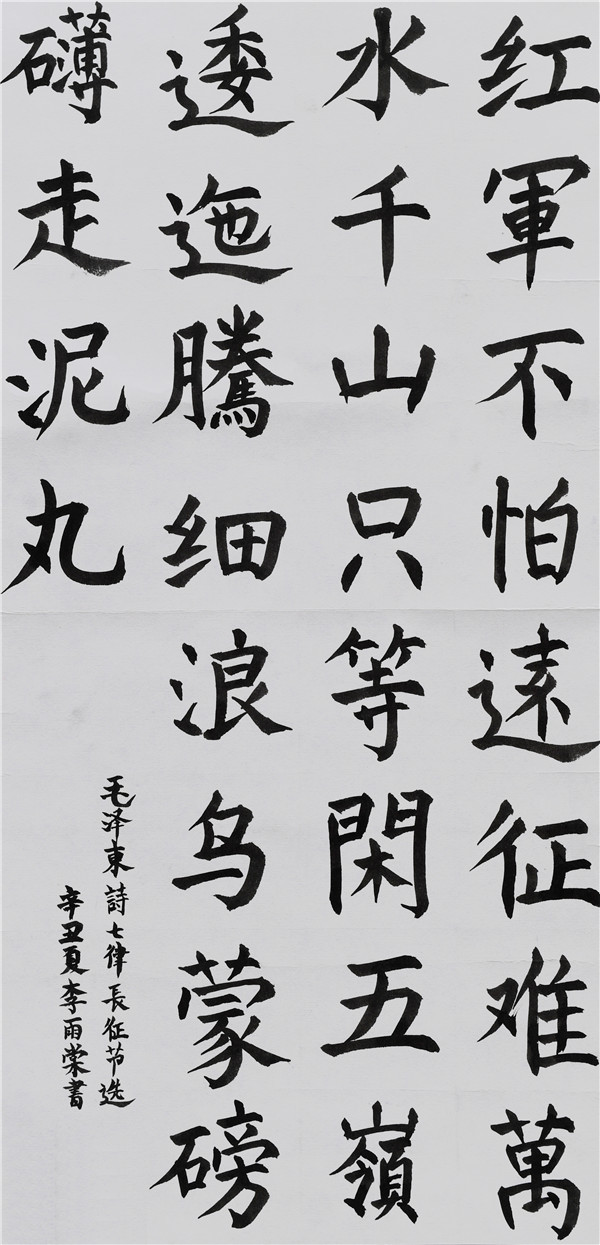 红軍不怕遠征难萬
水千山只等閑五嶺
逶迤騰细浪乌蒙磅
礴走泥丸
毛泽東詩七律長征节选
辛丑夏李雨棠書